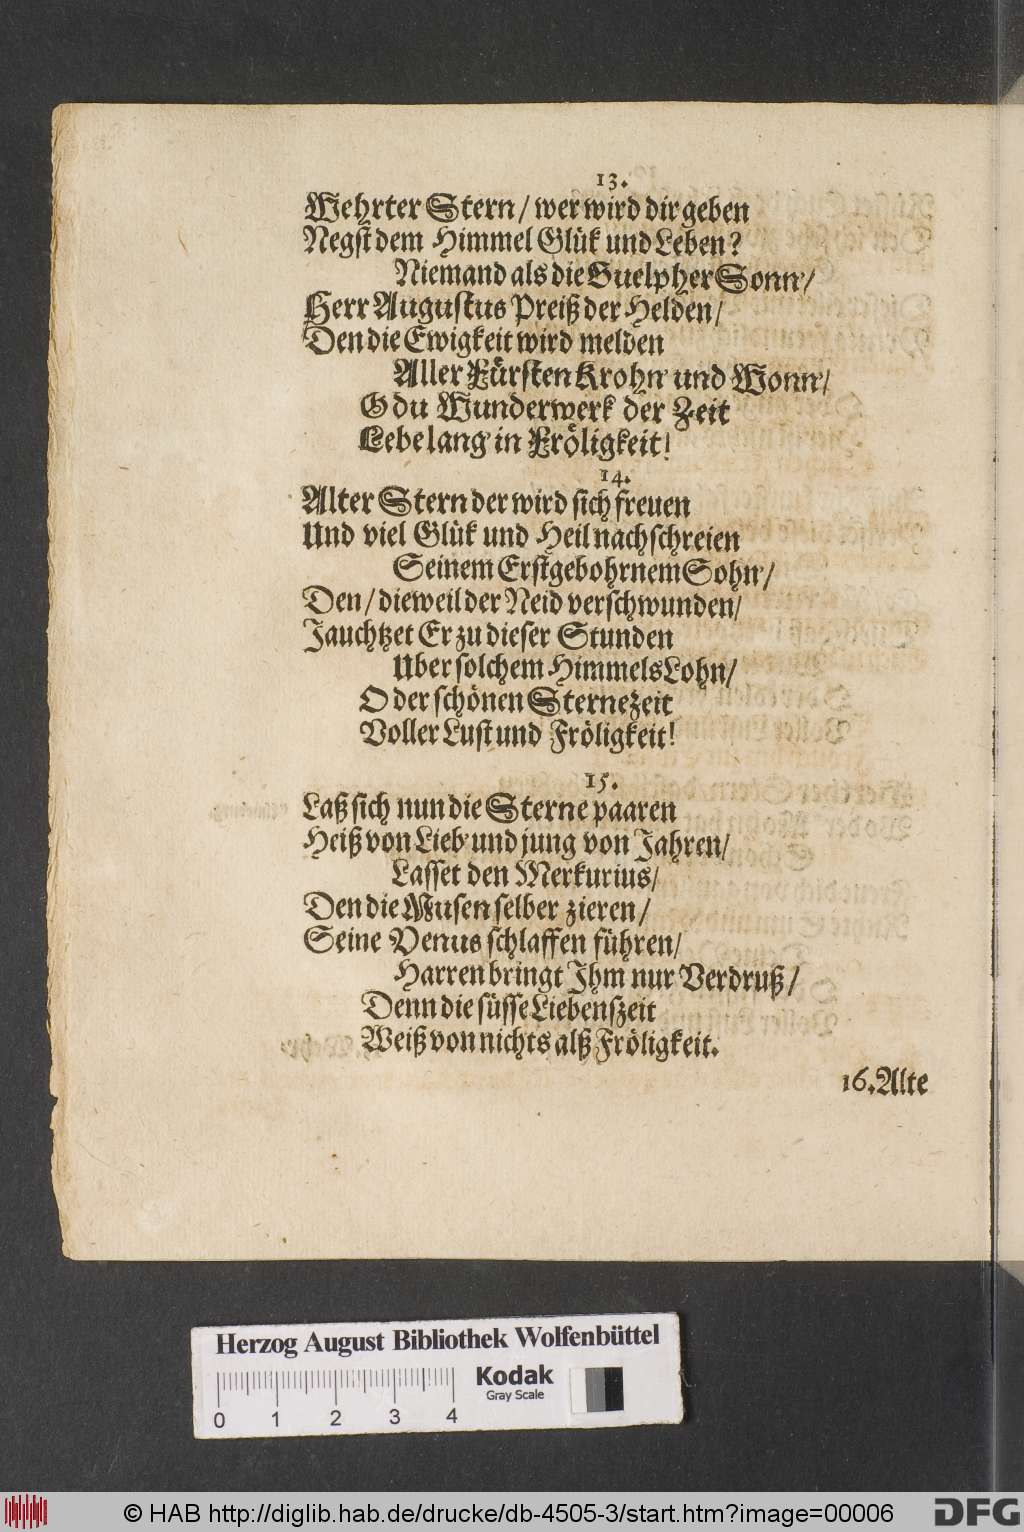 13.
Wehrter Stern / wer wird dir geben
Negst dem Himmel Glük und Leben?
Niemand als die Guelpher Sonn'/
Herr Augustus Preiß der Helden/
Den die Ewigkeit wird melden
Aller Fürsten Krohn' und Wonn'/
O du Wunderwerk der Zeit
Lebe lang' in Fröligkeit!
14.
Alter Stern der wird sich freuen
Und viel Glük und Heil nachschreien
Seinem Erstgebohrnem Sohn'/
Den / dieweil der Neid verschwunden/
Jauchtzet Er zu dieser Stunden
Uber solchem HimmelsLohn/
O der schönen Sternezeit
Voller Lust und Fröligkeit!
15.
Laß sich nun die Sterne paaren
Heiß von Lieb' und jung von Jahren/
Lasset den Merkurius/
Den die Musen selber zieren/
Seine Venus schlaffen führen/
Harren bringt Ihm nur Verdruß/
Denn die süsse Liebenszeit
Weiß von nichts alß Fröligkeit.
16. Alte
Herzog August Bibliothek Wolfenbüttel
Kodak
Gray Scale
0 1 2 3 4
© HAB http://diglib.hab.de/drucke/db-4505-3/start.htm?image=00006
DFG